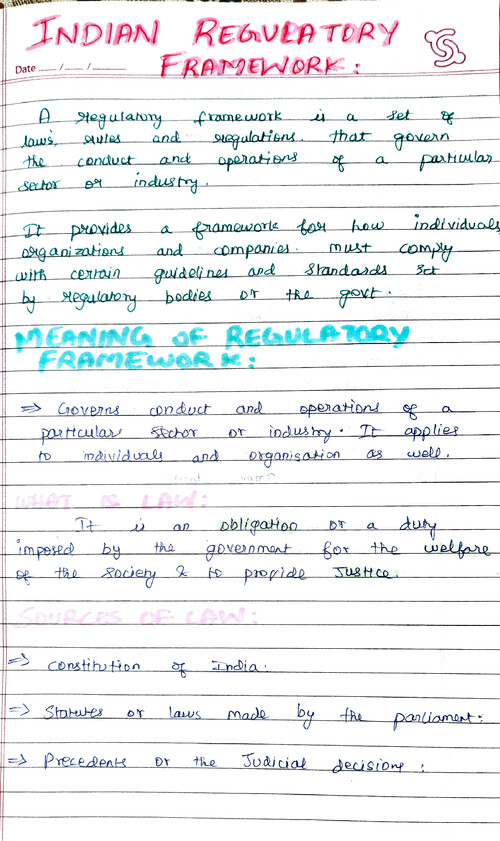 INDIAN REGULATORY
Date ___/___/___ FRAMEWORK:
A regulatory framework is a set of
laws, rules and regulations. that govern
the conduct and operations of a particular
sector or industry.
It provides a framework for how individuals,
organizations and companies. must comply
with certain guidelines and standards set
by regulatory bodies or the govt.
MEANING OF REGULATORY
FRAMEWORK:
⇒ Governs conduct and operations of a
particular sector or industry. It applies
to individuals and organisation as well.
WHAT IS LAW:
It is an obligation or a duty
imposed by the government for the welfare
of the society & to provide Justice.
SOURCES OF LAW:
⇒ Constitution of India.
⇒ Statutes or laws made by the parliament:
⇒ Precedents or the Judicial decisions: